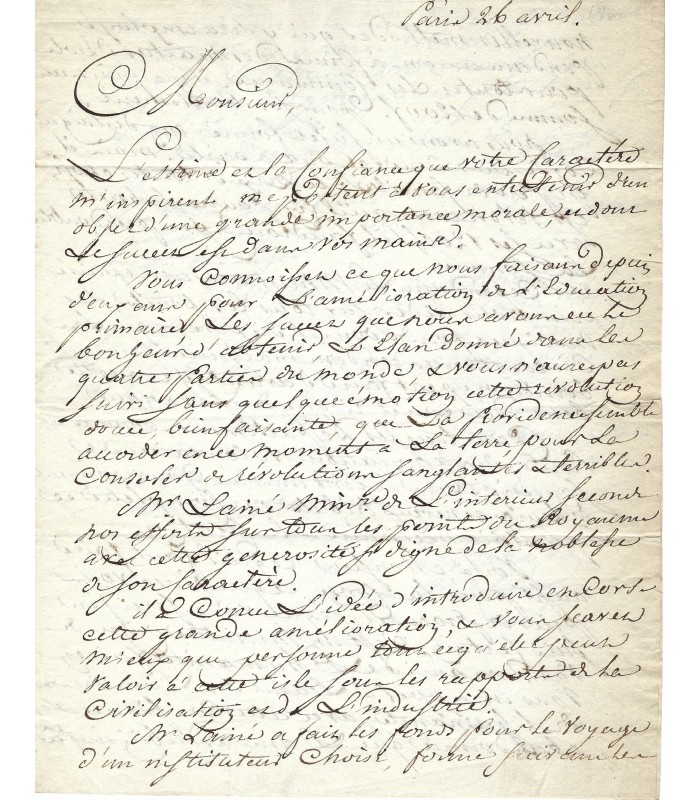 Paris 26 avril.
Monsieur,
L'estime et la Confiance que votre Caractère
m'inspirent me portent à vous entretenir d'un
objet d'une grande importance morale, et dont
Le succès est dans vos mains.
Vous connoissez ce que nous faisons depuis
deux ans pour L'amélioration de L'Education
primaire. Les succez que nous avons eu le
bonheur d'obtenir, L'Elan donné dans les
quatre parties du monde, & vous n'aurez pas
suivi sans quelque émotion cette révolution
douce bienfaisante, que La Providence semble
accorder en ce moment à La terre pour La
Consoler de révolutions sanglantes & terribles.
Mr Lainé min.re de L'interieur seconde
nos efforts sur tous les points du Royaume
avec cette generosité si digne de la noblesse
de son Caractère.
il a Conçu L'idée d'introduire en Corse
cette grande amélioration, & vous scavez
mieux que personne tout ce qu'elle peut
valoir à cette isle sous les rapports de la
Civilisation et de L'industrie.
Mr Lainé a fait les fonds pour le voyage
d'un instituteur choisi, formé